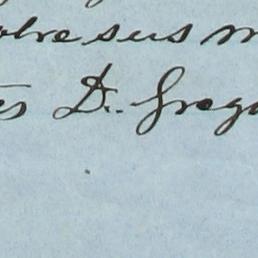 sobre sus m
es D. Grego